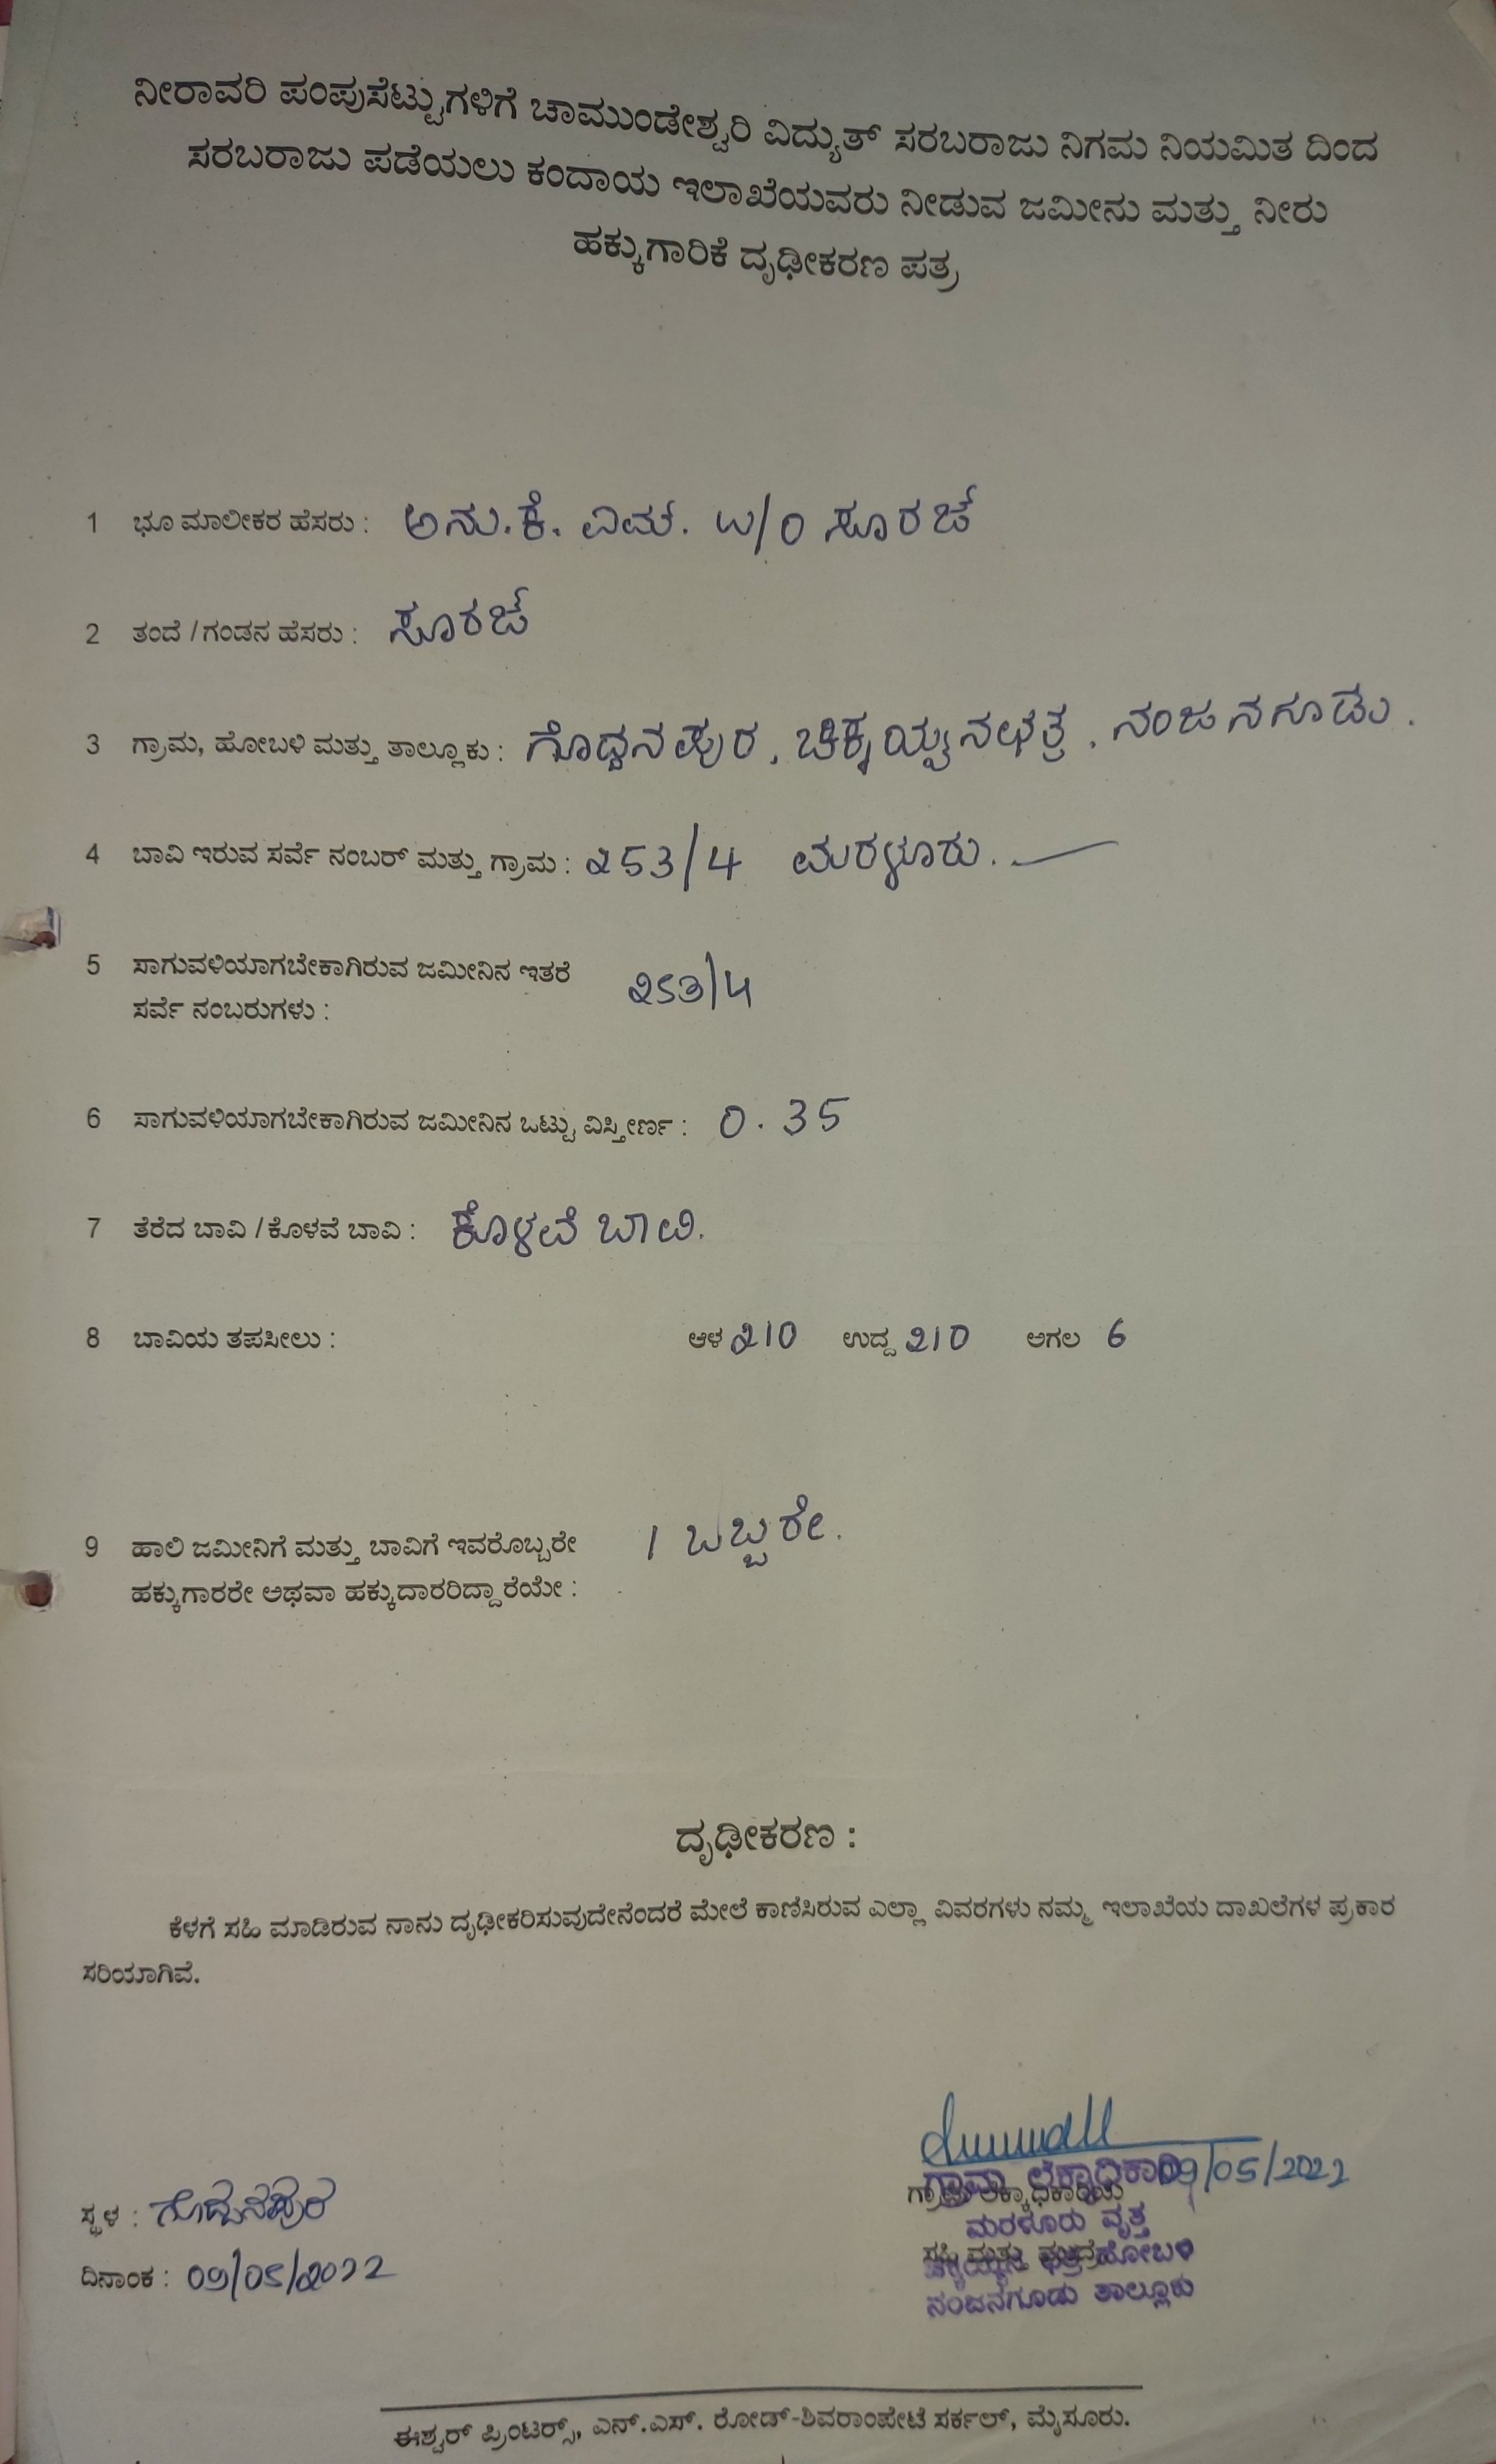 ನೀರಾವರಿ ಪಂಪುಸೆಟ್ಟುಗಳಿಗೆ ಚಾಮುಂಡೇಶ್ವರಿ ವಿದ್ಯುತ್ ಸರಬರಾಜು ನಿಗಮ ನಿಯಮಿತ ದಿಂದ
ಸರಬರಾಜು ಪಡೆಯಲು ಕಂದಾಯ ಇಲಾಖೆಯವರು ನೀಡುವ ಜಮೀನು ಮತ್ತು ನೀರು
ಹಕ್ಕುಗಾರಿಕೆ ದೃಢೀಕರಣ ಪತ್ರ
1 ಭೂ ಮಾಲೀಕರ ಹೆಸರು : ಅನು.ಕೆ. ಎಮ್. w/o ಸೂರಜ್
2 ತಂದೆ / ಗಂಡನ ಹೆಸರು : ಸೂರಜ್
3 ಗ್ರಾಮ, ಹೋಬಳಿ ಮತ್ತು ತಾಲ್ಲೂಕು : ಗೊದ್ದನಪುರ, ಚಿಕ್ಕಯ್ಯನಛತ್ರ, ನಂಜನಗೂಡು.
4 ಬಾವಿ ಇರುವ ಸರ್ವೆ ನಂಬರ್ ಮತ್ತು ಗ್ರಾಮ : 253/4 ಮರಳೂರು.
5 ಸಾಗುವಳಿಯಾಗಬೇಕಾಗಿರುವ ಜಮೀನಿನ ಇತರೆ 253/4
ಸರ್ವೆ ನಂಬರುಗಳು :
6 ಸಾಗುವಳಿಯಾಗಬೇಕಾಗಿರುವ ಜಮೀನಿನ ಒಟ್ಟು ವಿಸ್ತೀರ್ಣ : 0.35
7 ತೆರೆದ ಬಾವಿ / ಕೊಳವೆ ಬಾವಿ : ಕೊಳವೆ ಬಾವಿ.
8 ಬಾವಿಯ ತಪಸೀಲು : ಆಳ 210 ಉದ್ದ 210 ಅಗಲ 6
9 ಹಾಲಿ ಜಮೀನಿಗೆ ಮತ್ತು ಬಾವಿಗೆ ಇವರೊಬ್ಬರೇ 1 ಒಬ್ಬರೇ.
ಹಕ್ಕುಗಾರರೇ ಅಥವಾ ಹಕ್ಕುದಾರರಿದ್ದಾರೆಯೇ :
ದೃಢೀಕರಣ :
ಕೆಳಗೆ ಸಹಿ ಮಾಡಿರುವ ನಾನು ದೃಢೀಕರಿಸುವುದೇನೆಂದರೆ ಮೇಲೆ ಕಾಣಿಸಿರುವ ಎಲ್ಲಾ ವಿವರಗಳು ನಮ್ಮ ಇಲಾಖೆಯ ದಾಖಲೆಗಳ ಪ್ರಕಾರ
ಸರಿಯಾಗಿವೆ.
09/05/2022
ಗ್ರಾಮ ಲೆಕ್ಕಾಧಿಕಾರಿ
ಗ್ರಾಮ ಲೆಕ್ಕಾಧಿಕಾರಿಯ
ಸ್ಥಳ : ಗೊದ್ದನಪುರ
ಮರಳೂರು ವೃತ್ತ
ಸಹಿ ಮತ್ತು
ಹೋಬಳಿ
ದಿನಾಂಕ : 09/05/2022
ನಂಜನಗೂಡು ತಾಲ್ಲೂಕು
ಈಶ್ವರ್ ಪ್ರಿಂಟರ್ಸ್, ಎನ್.ಎಸ್. ರೋಡ್-ಶಿವರಾಂಪೇಟೆ ಸರ್ಕಲ್, ಮೈಸೂರು.